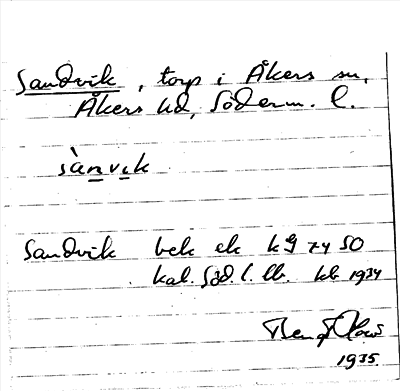 Sandvik, torp i Åkers sn,
Åkers hd, Söderm. l.
sànvik
Sandvik bek ek kg 74 SO
kal. Söd. l. lb. kb 1934
1935.